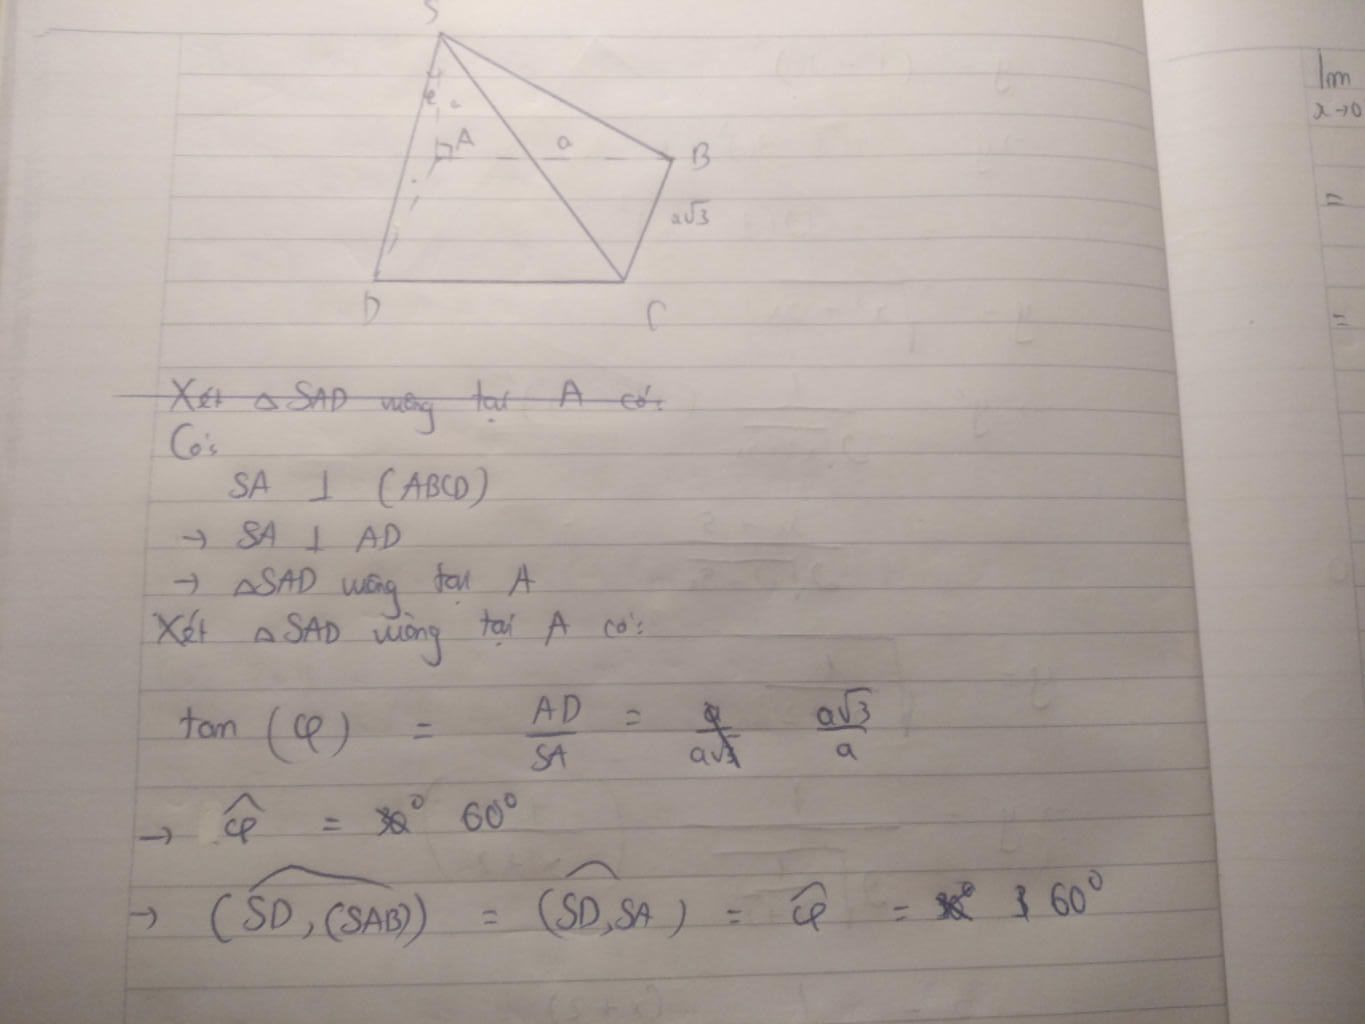 S
φ a
A a B
a√3
D C
Xét △SAD vuông tại A có:
Có:
SA ⊥ (ABCD)
→ SA ⊥ AD
→ △SAD vuông tại A
Xét △SAD vuông tại A có:
tan (φ) = AD/SA = a/a√3 a√3/a
→ φ̂ = 30° 60°
→ (SD, (SAB)) = (SD, SA) = φ̂ = 60°
lim
x→0
=
=